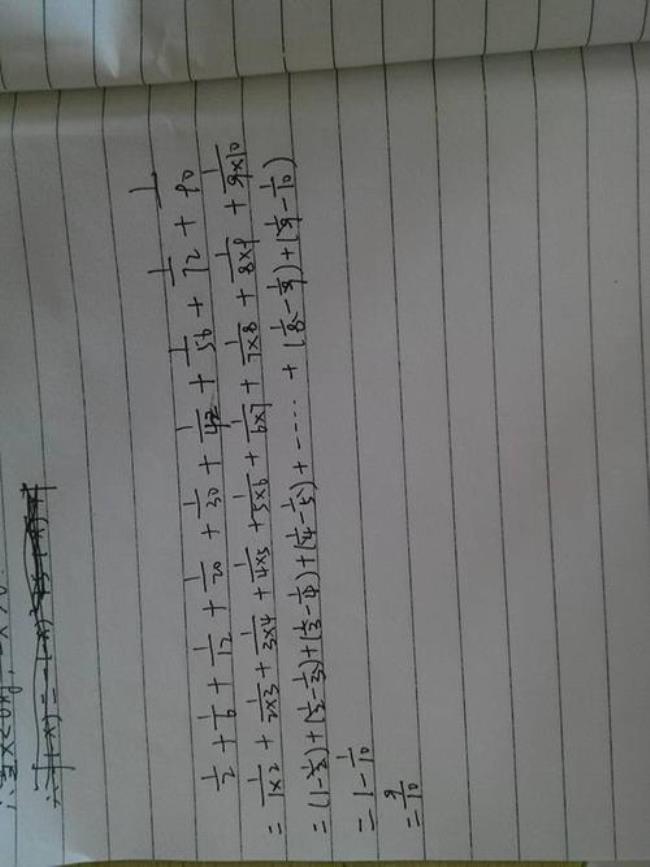 1/2 + 1/6 + 1/12 + 1/20 + 1/30 + 1/42 + 1/56 + 1/72 + 1/90
= 1/1×2 + 1/2×3 + 1/3×4 + 1/4×5 + 1/5×6 + 1/6×7 + 1/7×8 + 1/8×9 + 1/9×10
= (1-1/2) + (1/2-1/3) + (1/3-1/4) + (1/4-1/5) + ····· + (1/8-1/9) + (1/9-1/10)
= 1 - 1/10
= 9/10